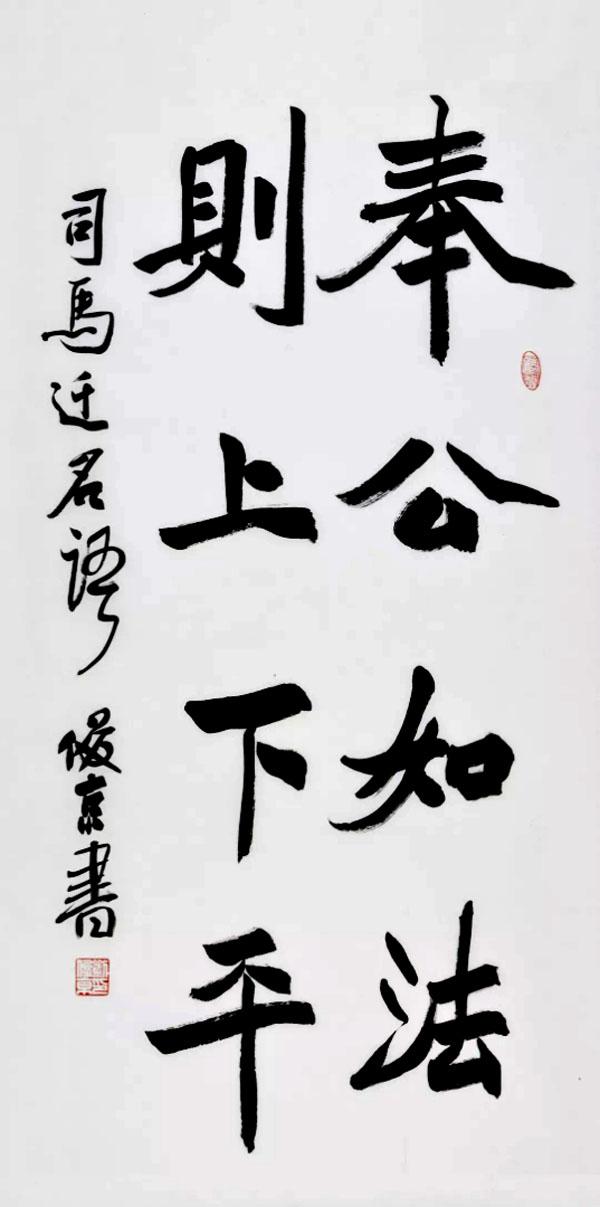 奉公如法
則上下平
司馬迁名語 俊京書